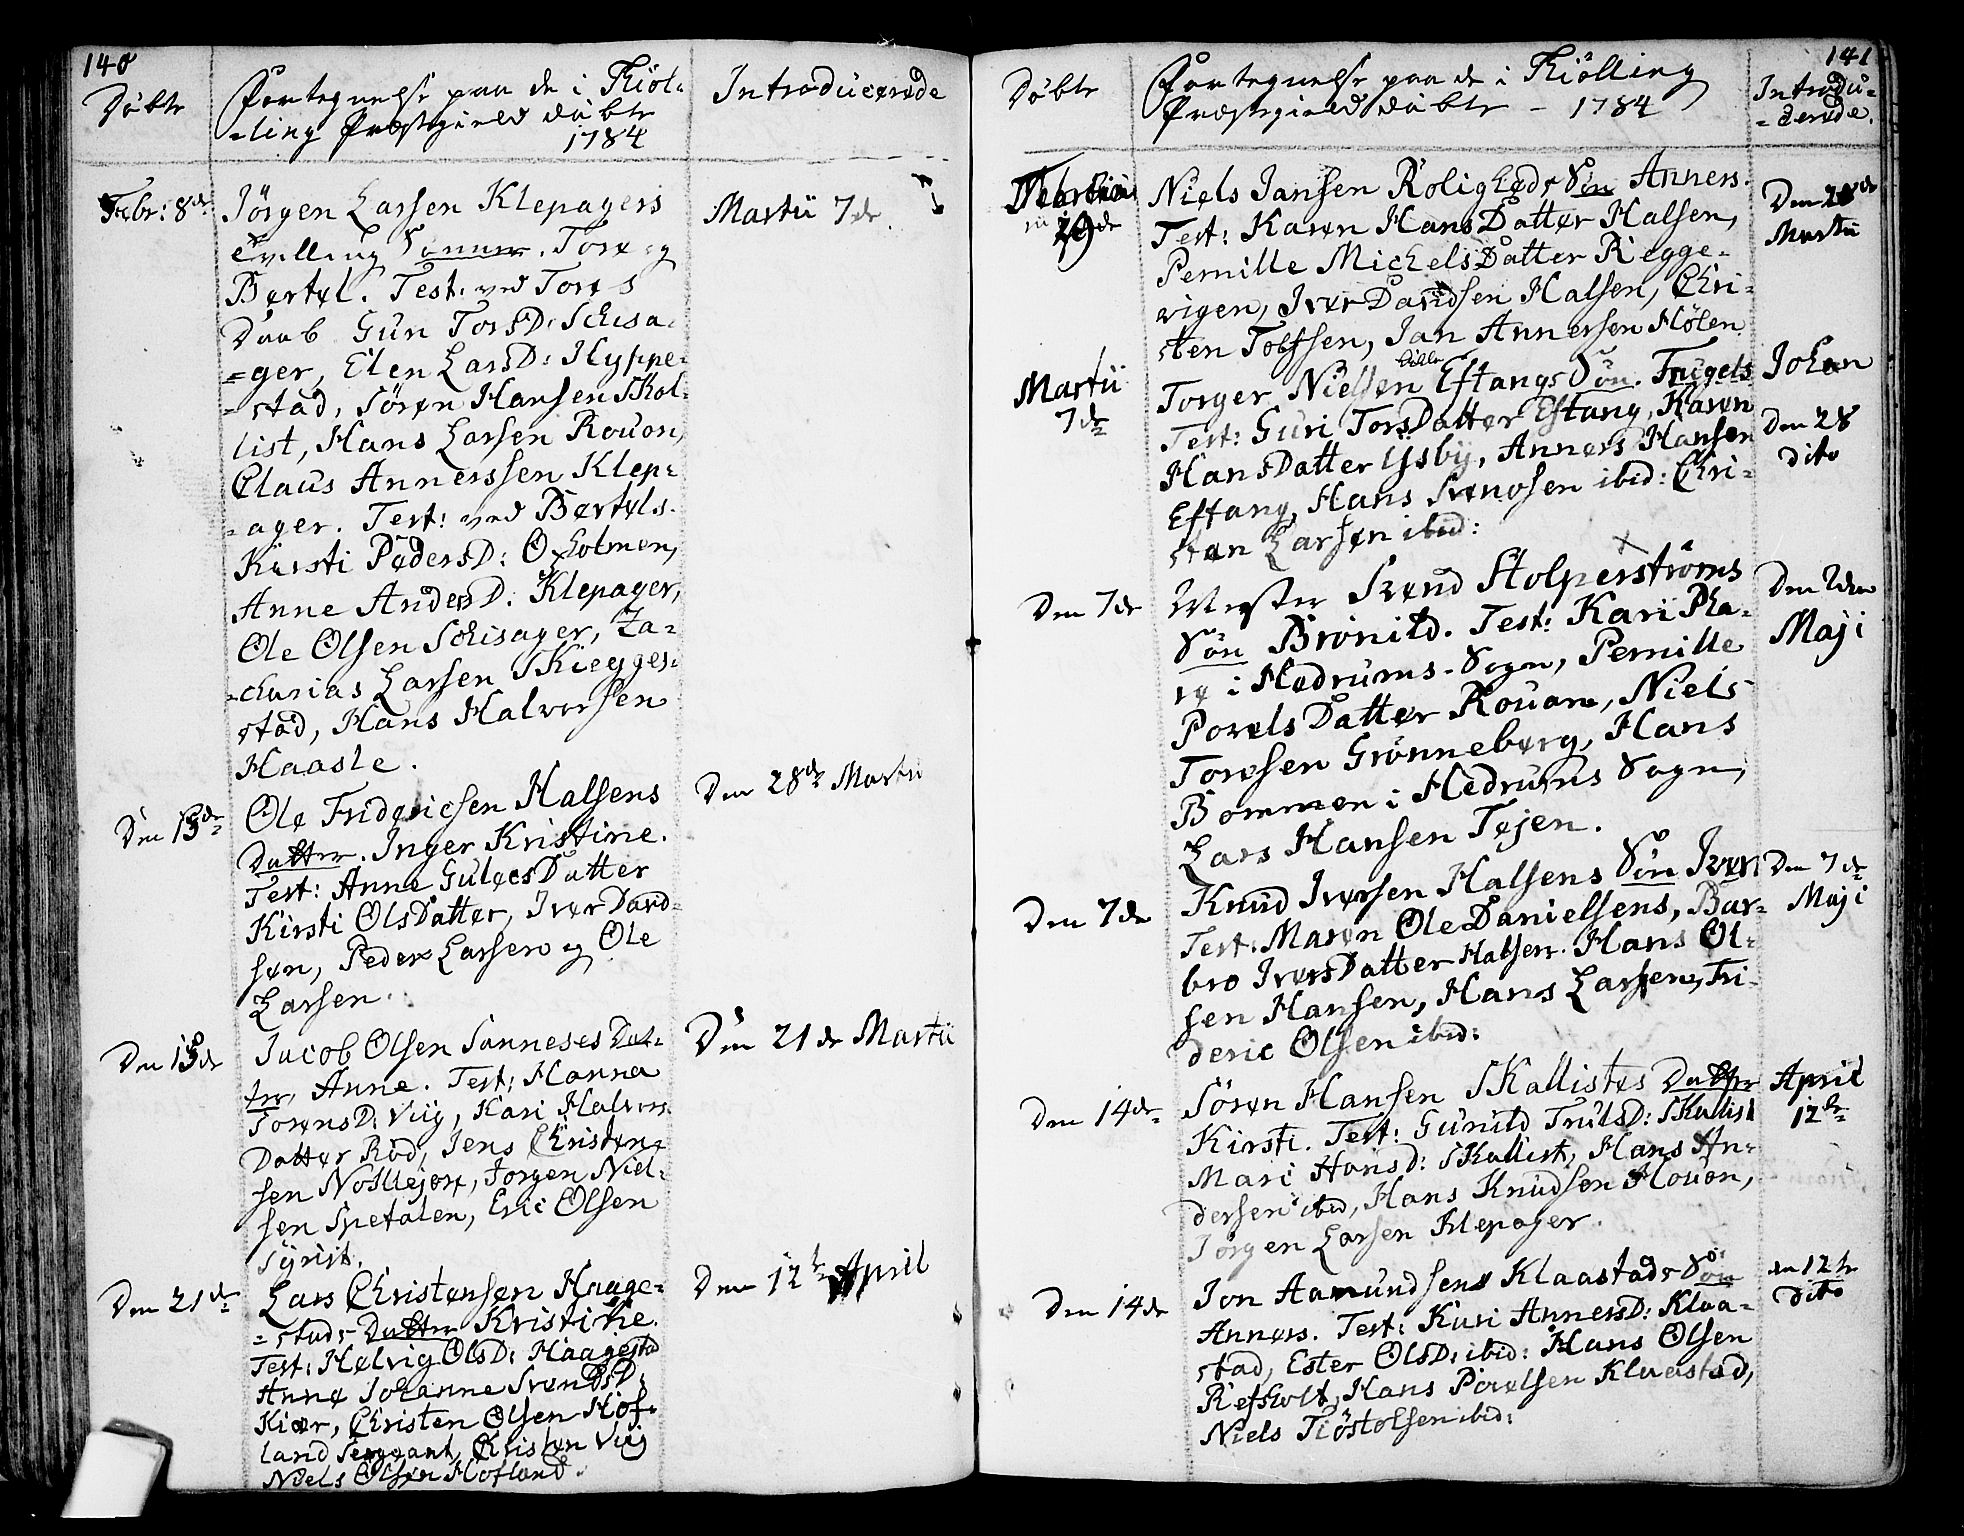 140
Døbte
Fortegnelse paa de i Kiöl-
-ling Præstegield døbte
1784
Introducerede
Febr: 8de
Jörgen Larsen Klepagers
Tvilling Sönner. Tore og
Bertel. Test: ved Tores
Daab Gun TorsD: Schisa-
-ger, Elen LarsD: Hyppe-
-stad, Sören Hansen Skal-
list, Hans Larsen Rouon,
Claus Annerssen Klep-
-ager. Test: ved Bertels.
Kirsti PedersD: Oxholmen,
Anne AndersD: Klepager,
Ole Olsen Schisager, Za-
-charias Larsen Skiegges-
stad, Hans Halversen
Haasle.
Martii 7de
Den 13de
Ole Fridericsen Halsens
Datter. Inger Kristine.
Test: Anne GulecsDatter
Kirsti OlsDatter, Iver David-
sen, Peder Larsen og Ole
Larsen.
Den 28de Martii
Den 13de
Jacob Olsen Sanneses Dat-
ter, Anne. Test: Hanna
TorensD: Viig, Kari Halvers
Datter Röd, Jens Christen-
sen Nollejore, Jorgen Niel-
sen Spetalen, Eric Olsen
Syrist.
Den 21de Martii
Den 21de
Lars Christensen Haage-
-stads Datter Kristine.
Test: Helvig OlsD: Haagestad
Anne Johanne SvendsD:
Kiær, Christen Olsen Hof-
land Sergeant, Christen Viig
Niels Olsen Hofland.
Den 12te April
141
Døbte
Fortegnelse paa de i Kiölling
Præstegield døbte - 1784
Introdu-
-cerede.
29de
Niels Jansen Roligheds Sön Anners.
Test: Karen HansDatter Halsen,
Pernille MichelsDatter Riegge-
vigen, Iver Davidsen Halsen, Chri-
sten Tolfsen, Jan Annersen Hölen
Den 28de
Martii
Martii
7de
Torger Nielsen lille Eftangs Sön. Trugels
Test: Guri TorsDatter Eftang, Karen
HansDatter Ysby, Anners Hansen
Eftang, Hans Svensen ibid: Chri-
sten Larsen ibid:
Johan
Den 28
dito
Den 7de
Mester Svend Stolperströms
Sön Brönild. Test: Kari Pha-
re i Hedrums-Sogn, Pernille
PovelsDatter Rouan, Niels
Toresen Grönneberg, Hans
Bommen i Hedrums Sogn,
Lars Hansen Tejen.
Den 2den
Maji
Den 7de
Knud Iversen Halsens Sön Iver
Test: Maren Ole Danielsens, Bar-
bro IversDatter Halsen. Hans Ol-
sen Hansen, Hans Larsen, Fri-
deric Olsen ibid:
Den 7de
Maji
Den 14de
Sören Hansen Skallistes Datter
Kirsti. Test: Gunild TrulsD: Skallist
Mari HansD: Skallist, Hans An-
dersen ibid, Hans Knudsen Houon,
Jorgen Larsen Klepager.
April
12te
Den 14de
Jon Aamundsens Klaastads Sön
Anners. Test: Kari AnnersD: Klaa-
stad, Ester OlsD: ibid: Hans Olsen
Refsholt, Hans Povelsen Klaastad,
Niels Tiöstolsen ibid:
den 12te
dito